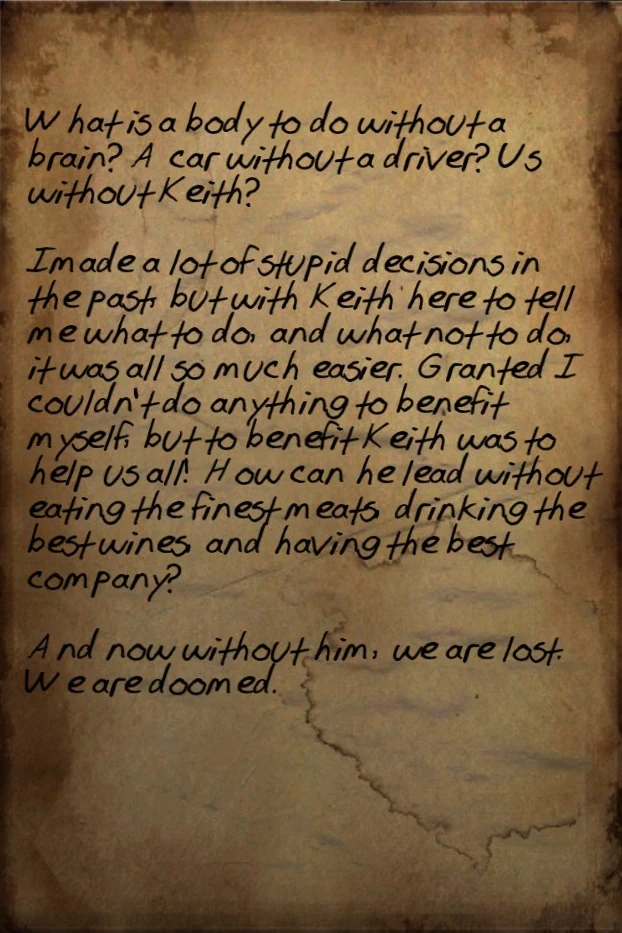 What is a body to do without a
brain? A car without a driver? Us
without Keith?
I made a lot of stupid decisions in
the past, but with Keith here to tell
me what to do, and what not to do,
it was all so much easier. Granted I
couldn't do anything to benefit
myself, but to benefit Keith was to
help us all! How can he lead without
eating the finest meats, drinking the
best wines, and having the best
company?
And now without him, we are lost.
We are doomed.